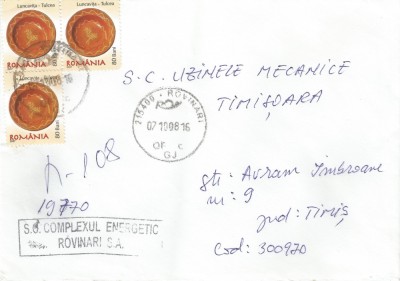 Luncavița - Tulcea
Luncavița - Tulcea
ROMÂNIA
80 Bani
ROMÂNIA
80 Bani
ROMÂNIA
80 Bani
215400 - ROVINARI
07 10 98 16
OF c
GJ
S.C. UZINELE MECANICE
TIMIȘOARA
R-108
19770
S.C. COMPLEXUL ENERGETIC
ROVINARI S.A.
str: Avram Imbroane
nr: 9
jud: Timiș
Cod: 300970